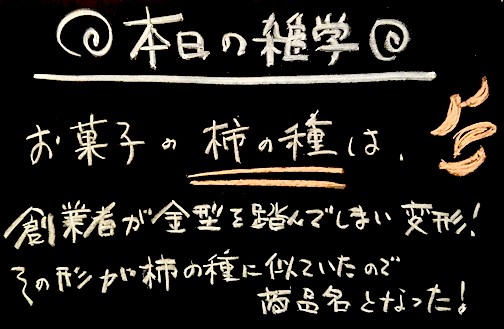 本日の雑学
お菓子の柿の種は、
創業者が金型を踏んでしまい変形!
その形が柿の種に似ていたので
商品名となった!